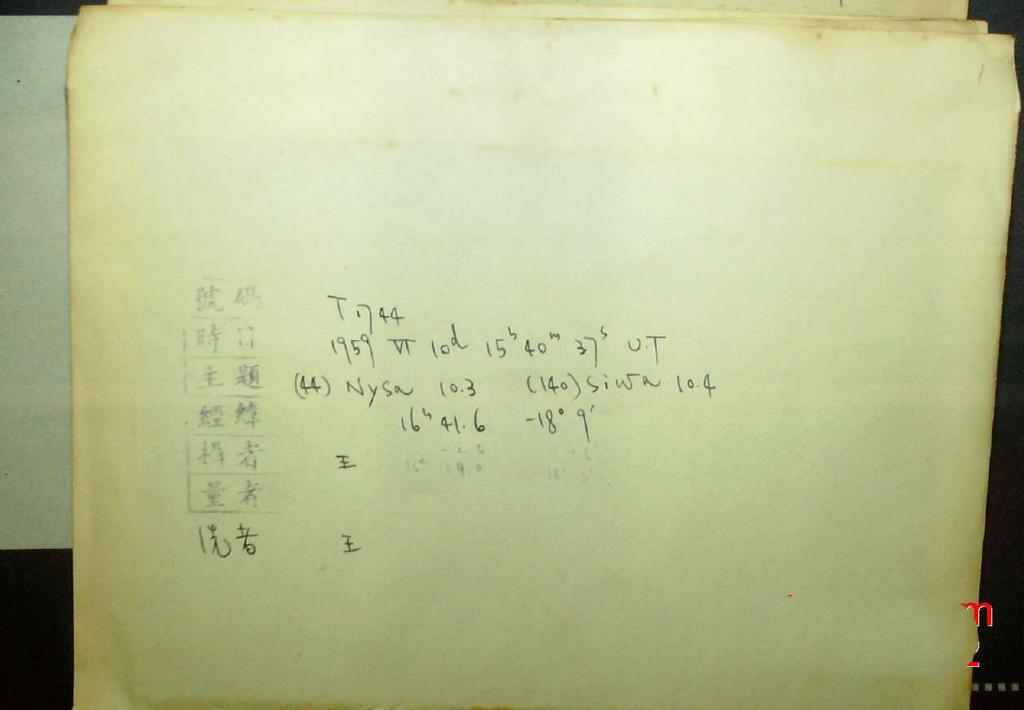 號碼 T 1744
時日 1959 VI 10d 15h 40m 37s U.T
主題 (44) Nysa 10.3 (140) Siwa 10.4
經緯 16h 41.6 -18° 9'
攝者 王
量者
洗者 王